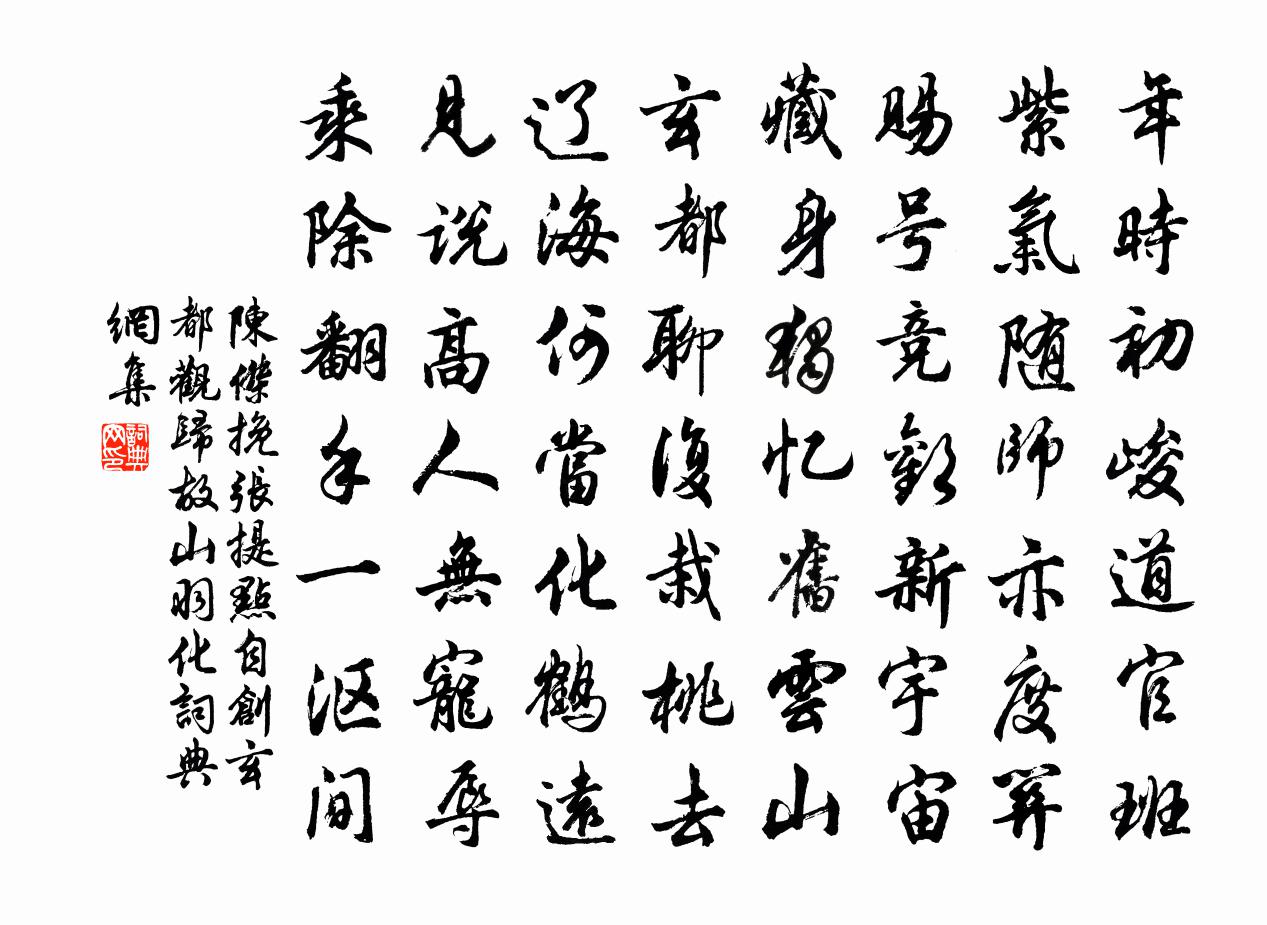 年時初峻道官班
紫氣随師亦度關
賜号競歡新宇宙
藏身獨忆舊雲山
玄都聊復栽桃去
辽海何當化鶴還
見说高人無寵辱
乘除翻手一沤间
陳傑挽張提點自創玄
都觀歸故山羽化詞典
網集